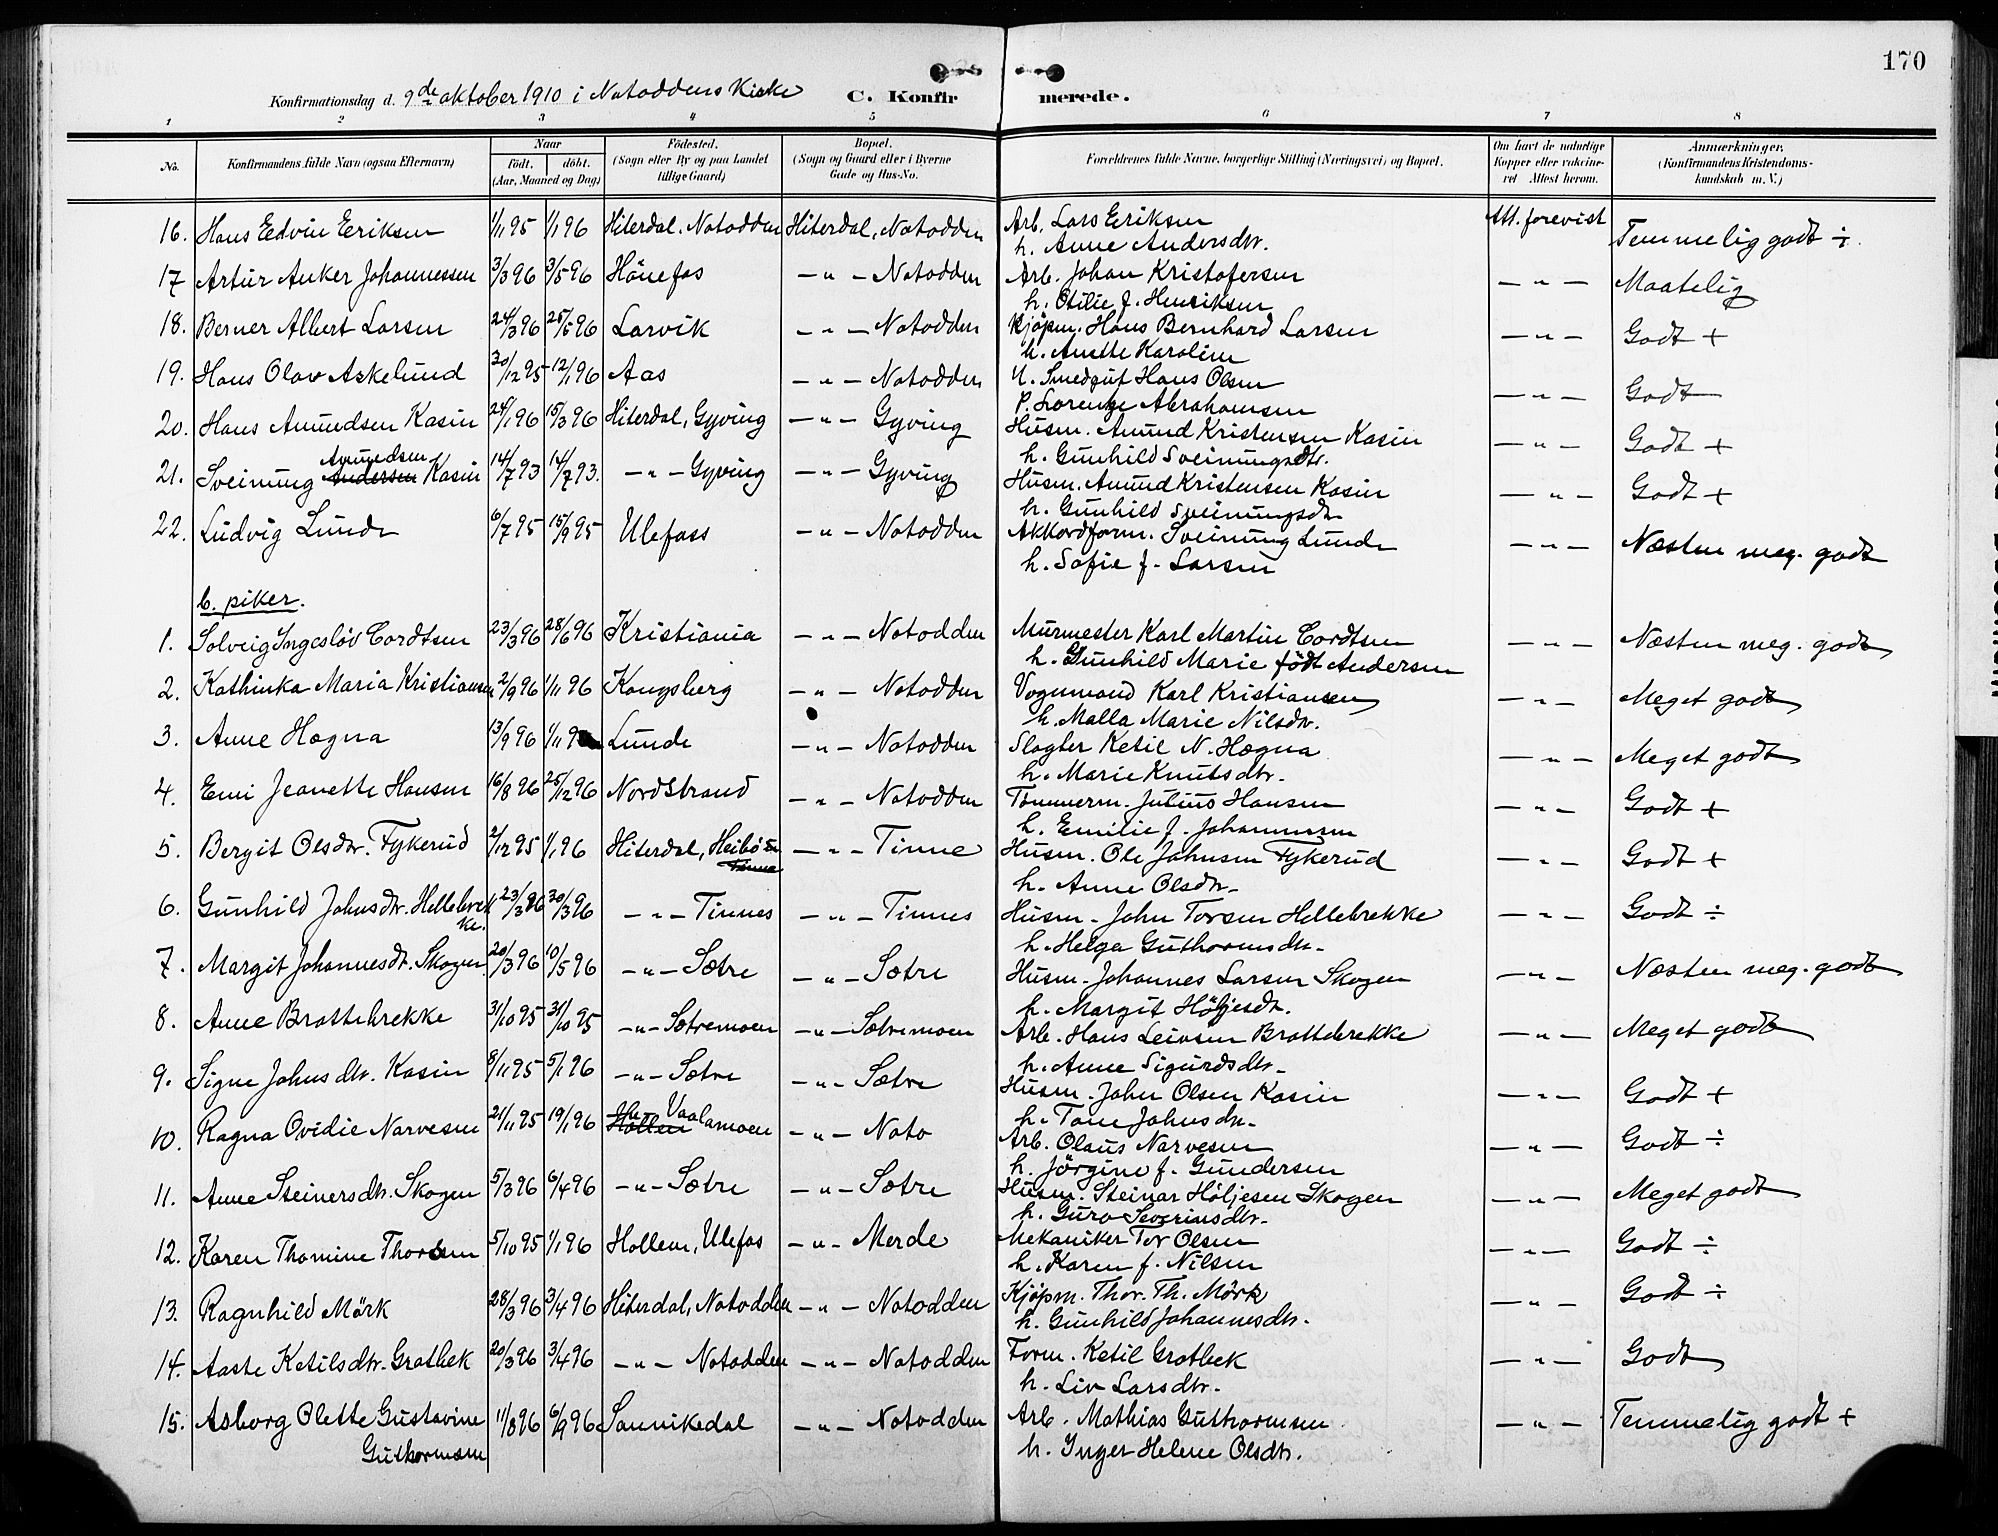 170
Konfirmationsdag d. 9de oktober 1910 i Notoddens Kirke C. Konfirmerede.
1 2 3 4 5 6 7 8
No. Konfirmandens fulde Navn (ogsaa Efternavn) Naar født. døbt. (Aar, Maaned og Dag) Fødested. (Sogn eller By og paa Landet tillige Gaard) Bopæl. (Sogn og Gaard eller i Byerne Gade og Hus-No. Forældrenes fulde Navne, borgerlige Stilling (Næringsvei) og Bopæl. Om havt de naturlige Kopper eller vaccineret Attest herom. Anmærkninger. (Konfirmandens Kristendomskundskab m. V.)
16. Hans Edvin Eriksen 1/11 95 1/1 96 Hiterdal. Notodden Hiterdal, Notodden Arb. Lars Eriksen Att. forevist Temmelig godt ÷
h. Anne Andersdtr.
17 Artur Anker Johannessen 3/3 96 3/5 96 Hönefos — " — Notodden Arb. Johan Kristofersen — " — Maatelig
h. Otilie f. Henriksen
18. Berner Albert Larsen 24/3 96 25/5 96 Larvik — " — Notodden Kjøpm. Hans Bernhard Larsen — " — Godt +
h. Anette Karoline
19. Hans Olav Askelund 30/12 95 12/1 96 Aas — " — Notodden U. Smedgut Hans Olsen — " — Godt
P. Lorentze Abrahamsen
20. Hans Amundsen Kasin 24/1 96 15/3 96 Hiterdal, Gyving — " — Gyving Husm. Amund Kristensen Kasin — " — Godt +
h. Gunhild Sveinungsdtr.
21. Sveinung Andersen Amundsen Kasin 14/7 93 14/7 93. — " — Gyving — " — Gyving Husm. Amund Kristensen Kasin — " — Godt +
h. Gunhild Sveinungsdtr
22. Ludvig Lunde 6/7 95 15/9 95 Ulefoss — " — Notodden Akkordform. Sveinung Lunde — " — Næsten meg. godt
h. Sofie f. Larsen
b. piker.
1. Solveig Ingesløv Cordtsen 23/3 96 28/6 96 Kristiania — " — Notodden Murmester Karl Martin Cordtsen — " — Næsten meg. godt
h. Gunhild Marie født Andersen
2. Kathinka Maria Kristiansen 2/9 96 1/11 96 Kongsberg — " — Notodden Vognmand Karl Kristiansen — " — Meget godt
h. Malla Marie Nilsdtr.
3. Anne Hægna 13/9 96 1/11 9 Lunde — " — Notodden Slagter Ketil N. Hægna — " — Meget godt
h. Marie Knutsdtr.
4. Emi Jeanette Hansen 16/8 96 25/12 96 Nordstrand — " — Notodden Tømmerm. Julius Hansen — " — Godt +
h. Emilie f. Johannesen
5. Bergit Olsdtr. Fykerud 2/12 95 1/1 96 Hiterdal, Heibö Tinne — " — Tinne Husm. Ole Johnsen Fykerud — " — Godt +
h. Anne Olsdtr.
6. Gunhild Johnsdtr. Hellebrekke. 23/3 96 30/3 96 — " — Tinnes — " — Tinnes Husm. John Torsen Hellebrekke — " — Godt ÷
h. Helga Guthormsdtr.
7. Margit Johannesdt. Skogen 20/3 96 10/5 96 — " — Sætre — " — Sætre Husm. Johannes Larsen Skogen — " — Næsten meg. godt
h. Margit Höljesdt.
8. Anne Brattebrekke 31/10 95 31/10 95 — " — Sætremoen — " — Sætremoen Arb. Hans Leivsen Brattebrekke — " — Meget godt
h. Anne Sigurdsdtr.
9. Signe Johnsdtr. Kasin 8/11 95 5/1 96 — " — Sætre — " — Sætre Husm. John Olsen Kasin — " — Godt +
h. Tone Johnsdtr.
10. Ragna Ovidie Narvesen 21/11 95 19/1 96 Hollen Vaalamoen — " — Noto Arb. Olaus Narvesen — " — Godt ÷
h. Jörgine f. Gundersen
11. Anne Steinersdtr. Skogen 5/3 96 6/4 96 — " — Sætre — " — Sætre Husm. Steinar Höljesen Skogen — " — Meget godt
h. Guro Severinsdtr.
12. Karen Thomine Thorsen 5/10 95 1/1 96 Hollen, Ulefos — " — Merde Mekaniker Tor Olsen — " — Godt ÷
h. Karen f. Nilsen
13. Ragnhild Mörk 28/3 96 3/4 96 Hiterdal, Notodden — " — Notodden Kjöpm. Thor. Th. Mörk — " — Godt ÷
h. Gunhild Johannesdtr.
14. Aaste Ketilsdtr. Grotbek 20/3 96 3/4 96 — " — Notodden — " — Notodden Form. Ketil Grotbek — " — Godt
h. Liv Larsdtr.
15. Asborg Olette Gustavine 11/8 96 6/9 96 Sannikedal — " — Notodden Arb. Mathias Guthormsen — " — Temmelig godt +
Guthormsen h. Inger Helene Olsdtr.